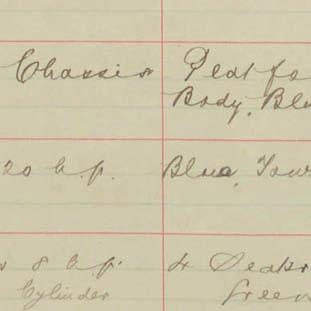 Chassis Platfo
Body, Blu
20 h.p. Blue, Tour
8 h.p. 4 Seater
Cylinder Green